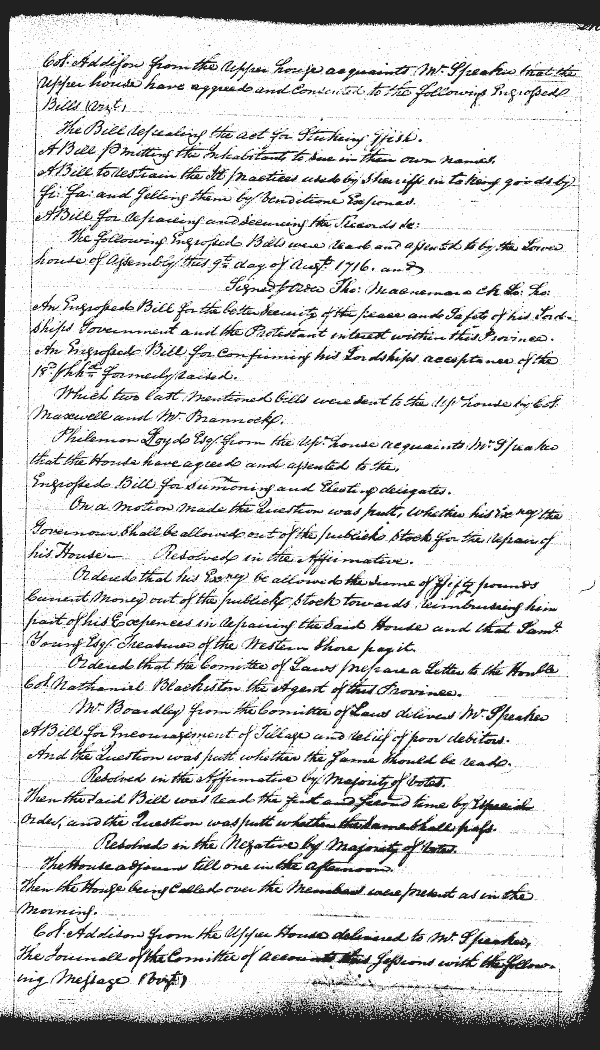 Col: Addison from the Upper house acquaints Mr Speaker that the
Upper house have agreed and Consented to the following Engrossed
Bills (vizt)
The Bill repealing the act for Strikeing ffish.
A Bill Pmitting the Inhabitants to Sue in their own names.
A Bill to restrain the Ill practices used by Sheriffs in takeing goods by
fi: fa: and Selling them by Venditione Exponas.
A Bill for repairing and Secureing the Records &c:
The following Engrossed Bills were read and assented to by the Lower
house of Assembly this 9th day of Augt. 1716. and
Signed Tho: Macnemara Ck Lo: Ho:
An Engrossed Bill for the better Security of the peace and Safety of his Lord-
ships Government and the Protestant interest within this Province.
An Engrossed Bill for Confirming his Lordships acceptance of the
18d P hhd formerly raised.
Which two last mentioned bills were sent to the Upr house by Col.
Maxwell and Mr. Brannock.
Philemon Loyd Esqr from the Upr house acquaints Mr Speaker
that the House have agreed and assented to the
Engrossed Bill for Sumoning and Electing delegates.
On a motion made the Question was putt, whether his Exncy the
Governour Shall be allowed out of the publick Stock for the repair of
his House Resolved in the Affirmative.
Ordered that his Exncy be allowed the Sume of ffifty pounds
Current Money out of the publick Stock towards reimbursing him
part of his Expences in repairing the Said House and that Saml.
Young Esqr Treasurer of the Western Shore pay it.
Ordered that the Comittee of Laws prepare a Letter to the Honble
Col. Nathaniel Blackiston the Agent of this Province.
Mr Boardley from the Comittee of Laws delivers Mr Speaker
A Bill for Encouragement of Tillage and relief of poor debitors.
And the Question was putt whether the Same Should be read.
Resolved in the Affirmative by Majority of Votes.
Then the Said Bill was read the first and Second time by Especial
Order, and the Question was putt whether the Same Shall pass.
Resolved in the Negative by Majority of Votes.
The House adjourns till one in the afternoon.
Then the House being Called over the Members were present as in the
Morning.
Col. Addison from the Upper House delivered to Mr Speaker,
The Journall of the Comittee of Accounts this Sessions with the follow-
ing Message (vizt)